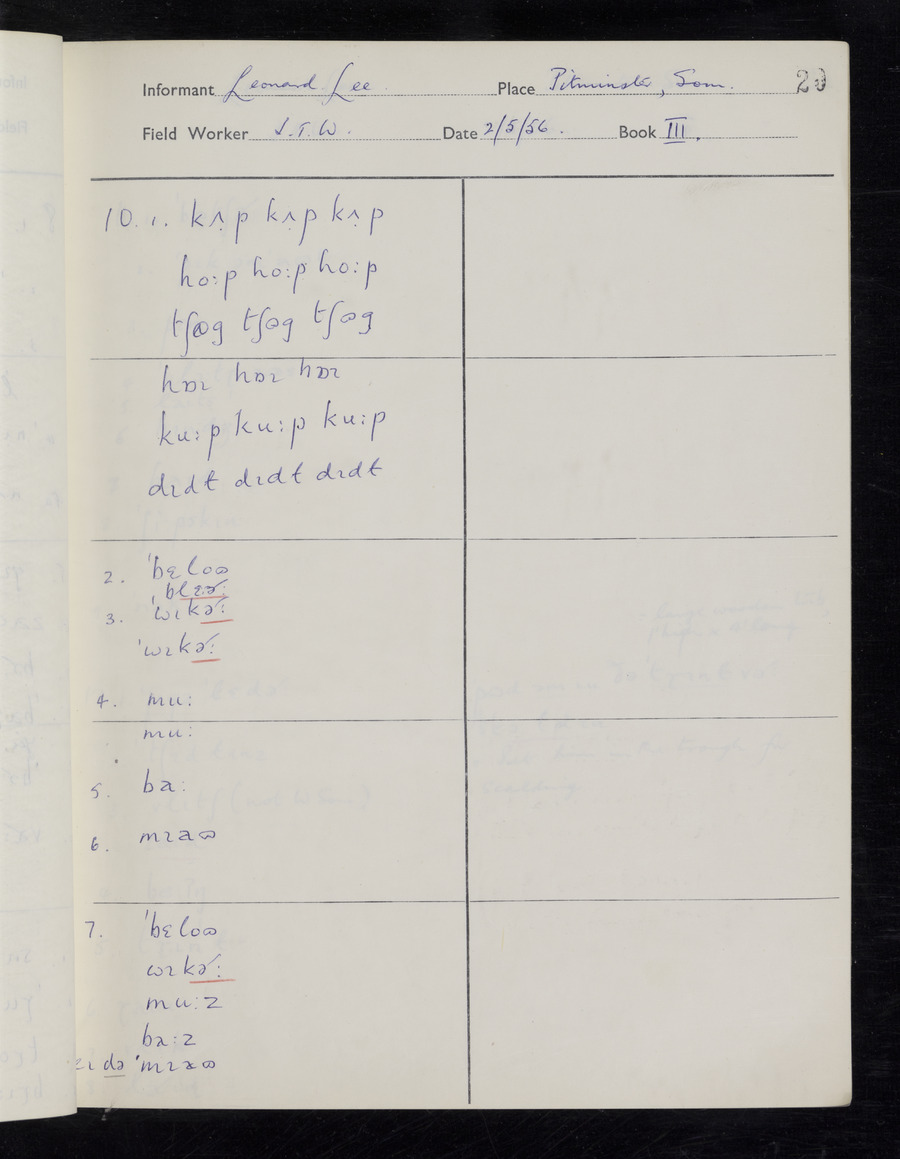 Informant Leonard Lee Place Pitminster, Som. 20
Field Worker J.T.W. Date 2/5/56. Book III.
10. 1. kʌ̣p kʌ̣p kʌ̣p
ho:p ho:p ho:p
tʃɷg tʃɷg tʃɷg
hɒɪ hɒɪ hɒɪ
ku:p ku:p ku:p
dɪdt dɪdt dɪdt
2. 'bɛloɷ
'blɛɚ:
3. 'wɪkɚ:
'wɪkɚ:
4. mu:
mu:
5. ba:
6. mɪaɷ
7. 'bɛloɷ
wɪkɚ:
mu:z
ba:z
ɛɪ də 'mɪaɷ